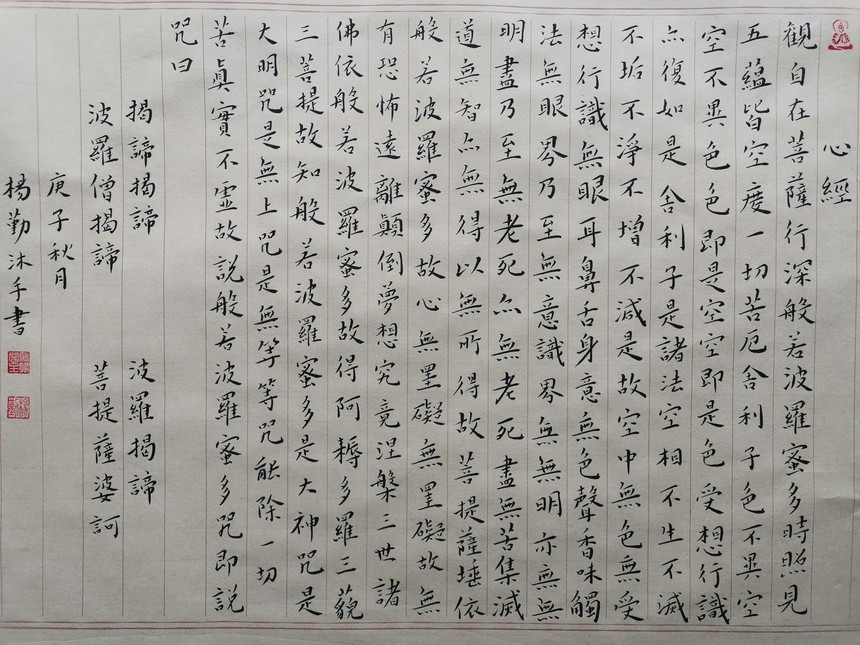 心經
觀自在菩薩行深般若波羅蜜多時照見
五蘊皆空度一切苦厄舍利子色不異空
空不異色色即是空空即是色受想行識
亦復如是舍利子是諸法空相不生不滅
不垢不淨不增不減是故空中無色無受
想行識無眼耳鼻舌身意無色聲香味觸
法無眼界乃至無意識界無無明亦無無
明盡乃至無老死亦無老死盡無苦集滅
道無智亦無得以無所得故菩提薩埵依
般若波羅蜜多故心無罣礙無罣礙故無
有恐怖遠離顛倒夢想究竟涅槃三世諸
佛依般若波羅蜜多故得阿耨多羅三藐
三菩提故知般若波羅蜜多是大神咒是
大明咒是無上咒是無等等咒能除一切
苦真實不虛故說般若波羅蜜多咒即說
咒曰
揭諦揭諦 波羅揭諦
波羅僧揭諦 菩提薩婆訶
庚子秋月
楊勤沐手書